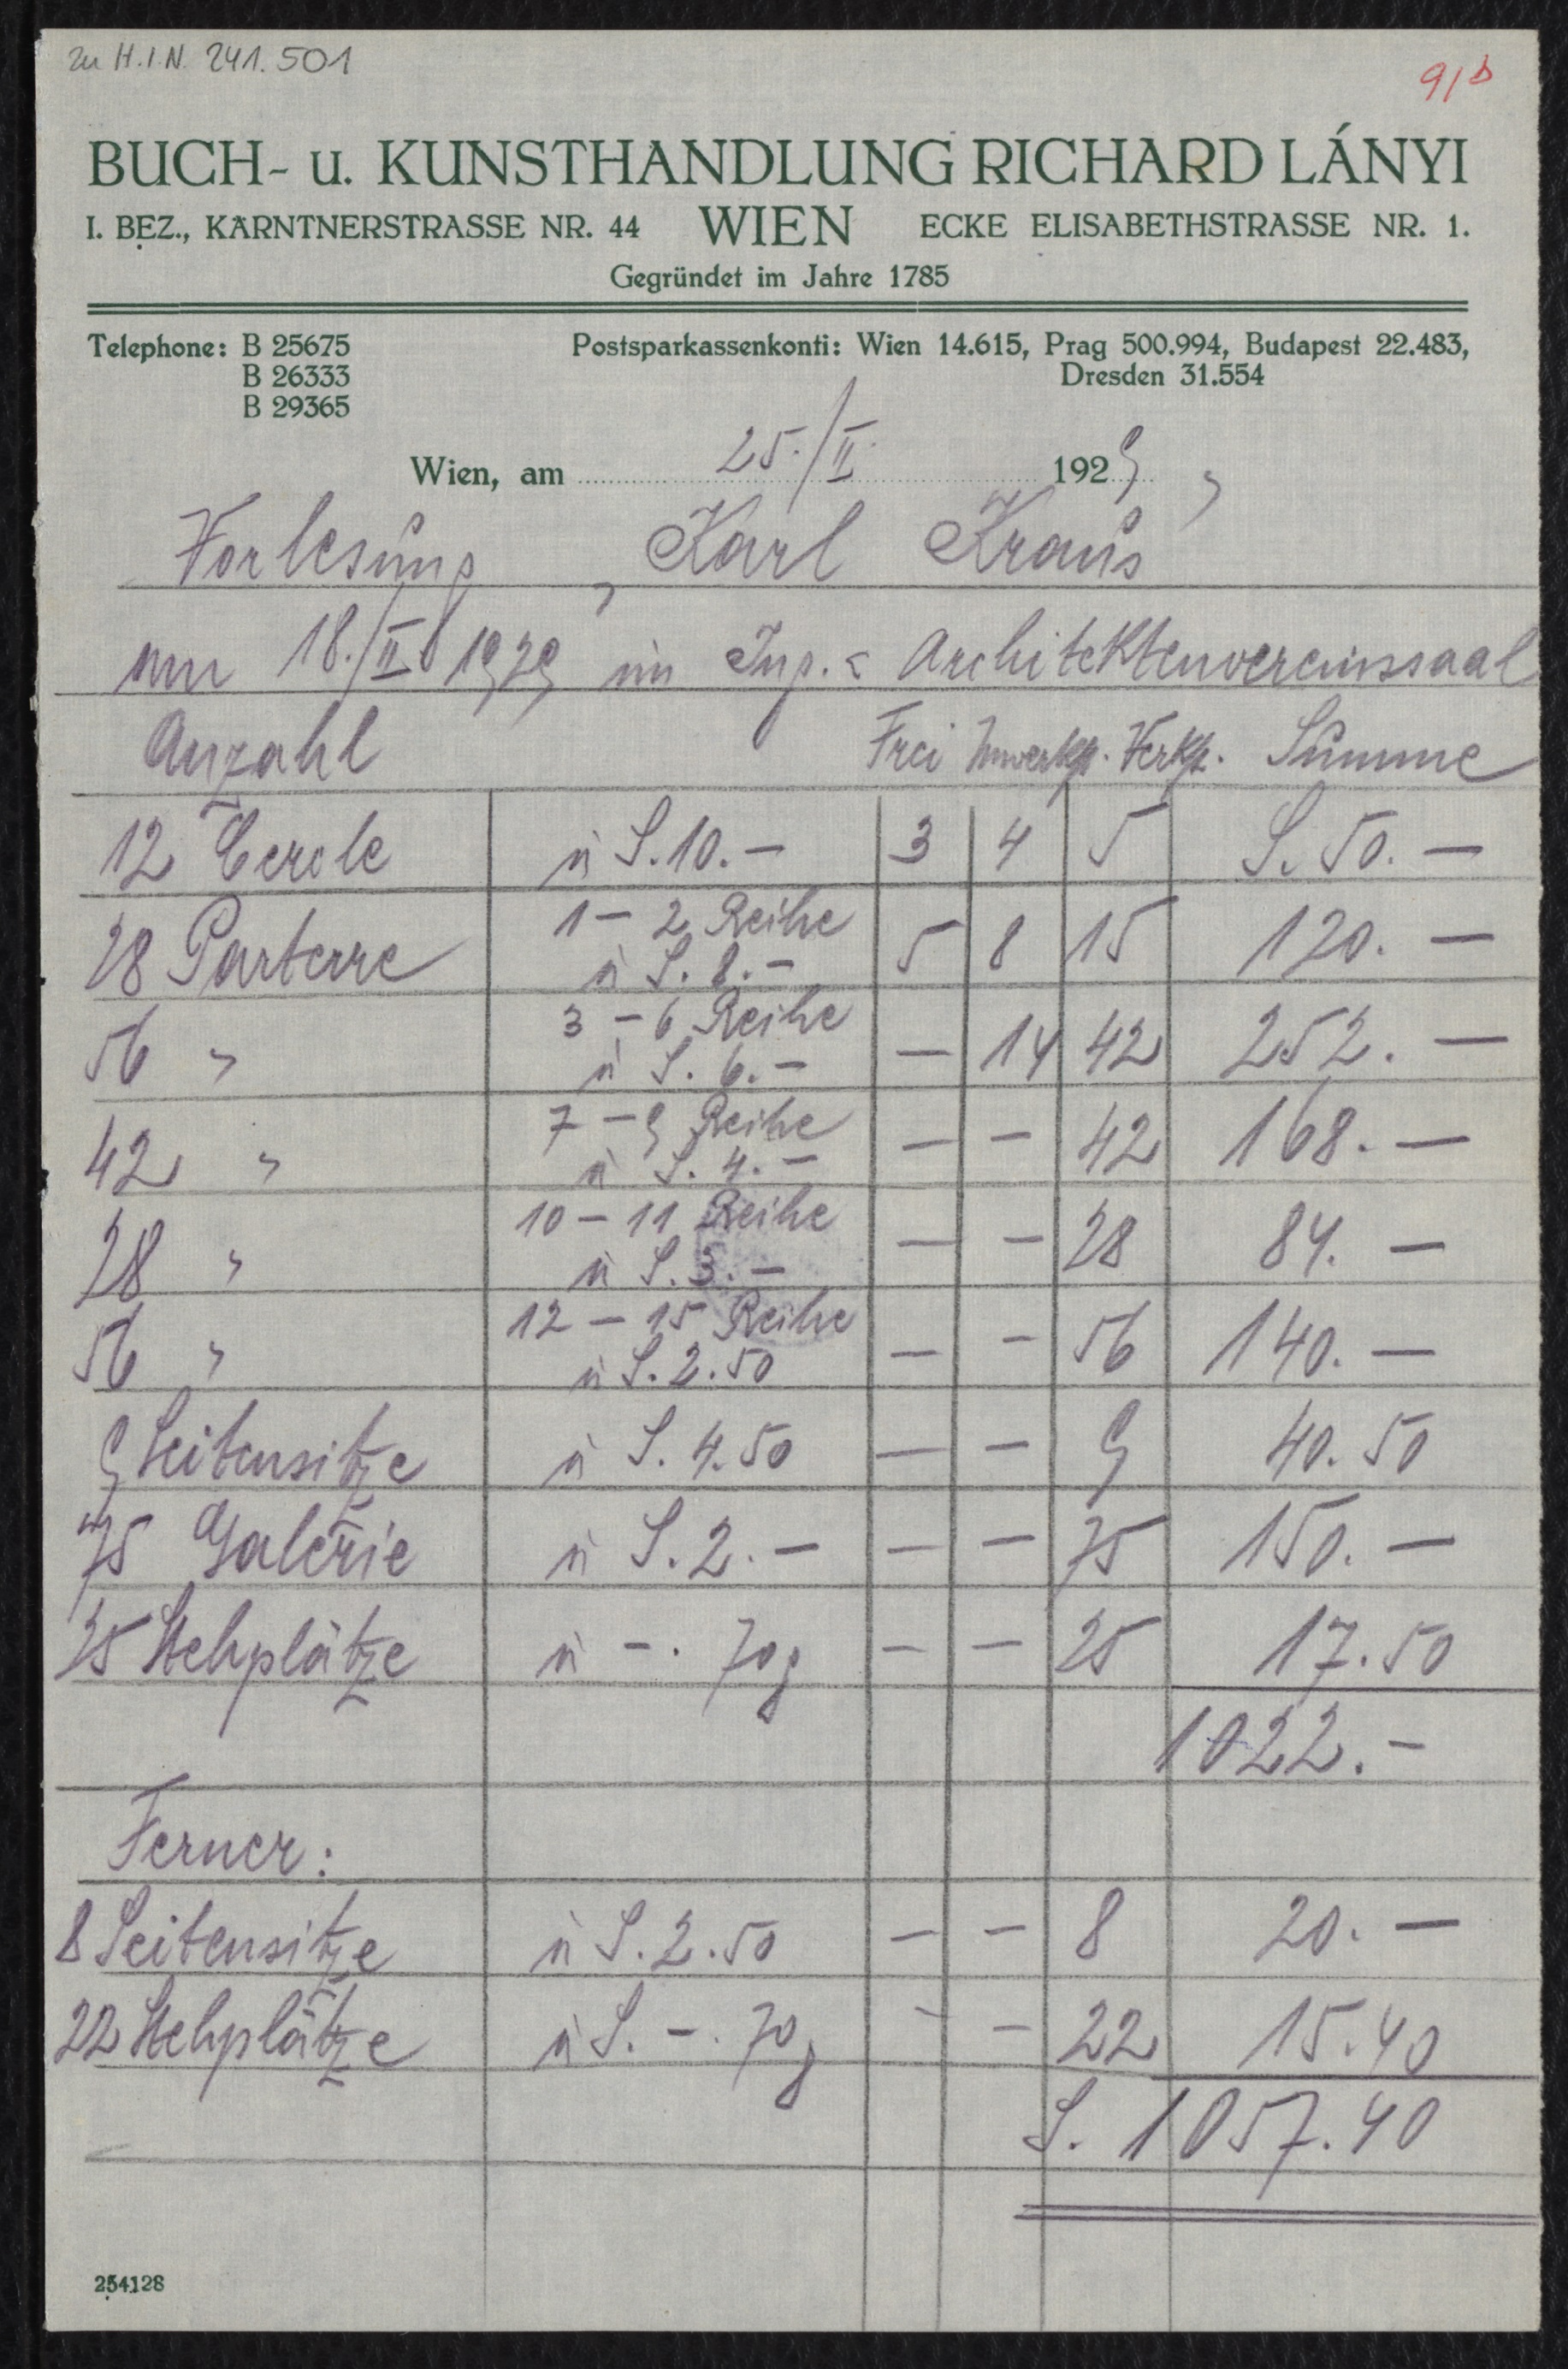 zu H.I.N. 241.501
91b
BUCH- u. KUNSTHANDLUNG RICHARD LÁNYI
I. BEZ., KÄRNTNERSTRASSE NR. 44 WIEN ECKE ELISABETHSTRASSE NR. 1.
Gegründet im Jahre 1785
Telephone: B 25675
B 26333
B 29365
Postsparkassenkonti: Wien 14.615, Prag 500.994, Budapest 22.483,
Dresden 31.554
Wien, am 25./II. 1929
Vorlesung „Karl Kraus"
am 18./II 1929 im Ing. = Architektenvereinssaal
Anzahl Frei Unverkft. Verkft. Summe
12 Cercle à S. 10.— 3 4 5 S. 50.—
28 Parterre 1 – 2 Reihe à S. 8.— 5 8 15 120.—
56 " 3 – 6 Reihe à S. 6.— — 14 42 252.—
42 " 7 – 9 Reihe à S. 4.— — — 42 168.—
28 " 10 – 11 Reihe à S. 3.— — — 28 84.—
56 " 12 – 15 Reihe à S. 2.50 — — 56 140.—
9 Seitensitze à S. 4.50 — — 9 40.50
75 Galerie à S. 2.— — — 75 150.—
25 Stehplätze à —.70g — — 25 17.50
1022.—
Ferner:
8 Seitensitze à S. 2.50 — — 8 20.—
22 Stehplätze à S. —.70g — — 22 15.40
S. 1057.40
254128